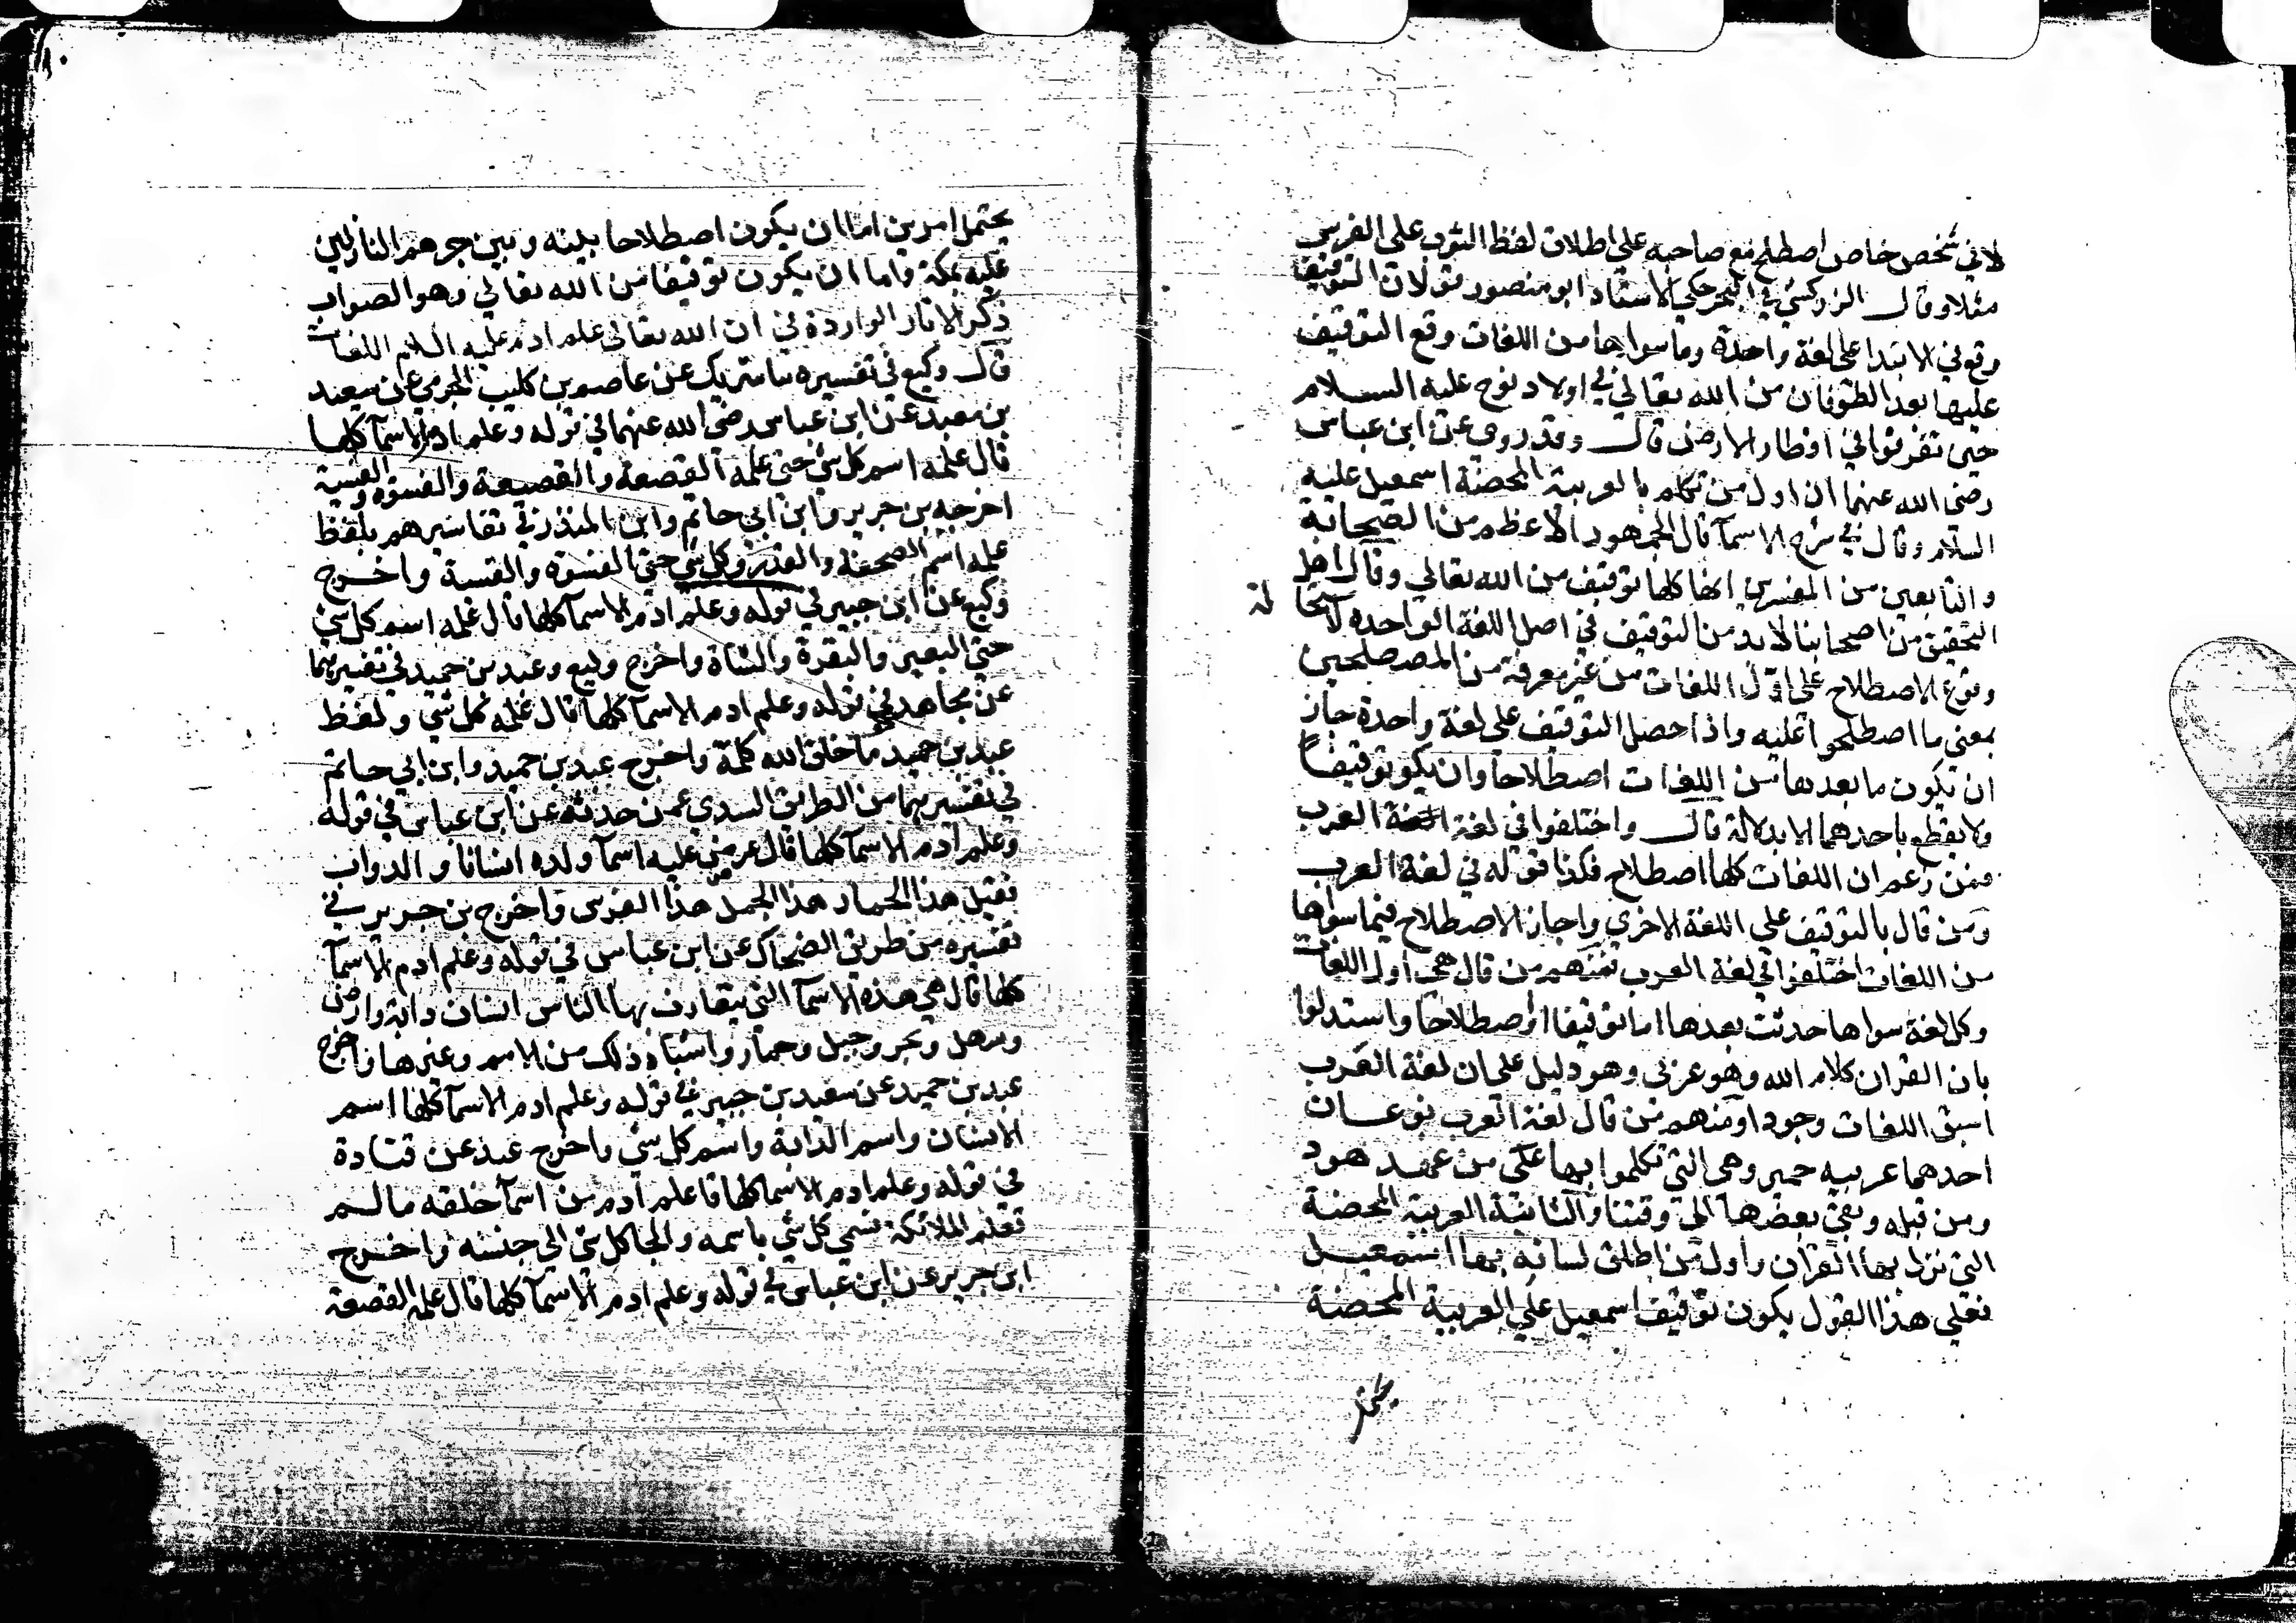 لا في شخص خاص اصطلح مع صاحبه على اطلاق لفظ الثوب على الفرس
مثلا وقال الزركشي في البحر حكي الاستاد ابو منصور قولا ان التوقيف
وقع في الابتدا على لغة واحدة وما سواها من اللغات وقع التوقيف
عليها بعد الطوفان من الله تعالي في اولاد نوح عليه السلام
حين تفرقوا في اقطار الارض قال وقد روي عن ابن عباس
رضي الله عنهما ان اول من تكلم بالعربية المحضة اسمعيل عليه
السلام وقال في شرح الاسما قال الجمهور الاعظم من الصحابة
والتابعين من المفسرين انها كلها توقيف من الله تعالي وقال اهل
التحقيق من اصحابنا لابد من التوقيف في اصل اللغة الواحده لاستحا لة
وقوع الاصطلاح على اول اللغات من غير معرفة من المصطلحين
بمعني ما اصطلحوا عليه واذا حصل التوقيف على لغة واحدة جاز
ان تكون ما بعدها من اللغات اصطلاحا وان يكو توقيفا
ولا يقطع باحدهما الا بدلالة قال واختلفوا في لغة العرب
فمن زعم ان اللغات كلها اصطلاح فكذا قوله في لغة العرب
ومن قال بالتوقيف على اللغة الاخري واجاز الاصطلاح فيما سواها
من اللغات اختلفوا في لغة العرب فمنهم من قال هي اول اللغات
وكل لغة سواها حدثت بعدها اما توقيفا او اصطلاحا واستدلوا
بان القران كلام الله وهو عربي وهو دليل على ان لغة العرب
اسبق اللغات وجودا ومنهم من قال لغة العرب نوعان
احدهما عربيه حمير وهي التي تكلموا بها من عهد هود
ومن قبله وبقي بعضها الي وقتنا والثانية العربية المحضة
التي نزل بها القران واول من اطلق لسانه بها اسمعيل
فعلي هذا القول يكون توقيف اسمعيل علي العربية المحضة
يحتمل امرين اما ان يكون اصطلاحا بينه وبين جرهم النازلين
عليه بمكة واما ان يكون توقيفا من الله تعالي وهو الصواب
ذكر الاثار الواردة في ان الله تعالى علم ادم عليه السلام اللغات
قال وكيع في تفسيره ثنا شريك عن عاصم بن كليب الجرمي عن سعيد
بن معبد عن ابن عباس رضي الله عنهما في قوله وعلم ادم الاسما كلها
قال علمه اسم كل شي حتي علمه القصعة والقصيعة والفسوة والفسية
اخرجه بن جرير وابن ابي حاتم وابن المنذر في تفاسيرهم بلفظ
علمه اسم الصحفة والقدر وكل شي حتي الفسوة والفسية واخرج
وكيع عن ابن جبير في قوله وعلم ادم الاسما كلها قال علمه اسم كل شي
حتي البعير والبقرة والشاة واخرج وكيع وعبد بن حميد في تفسيرهما
عن مجاهد في قوله وعلم ادم الاسما كلها قال علمه كل شي ولفظ
عبد بن حميد ما خلق الله كلمة واخرج عبد بن حميد وابن ابي حاتم
في تفسيرهما من الطريق السدي عمن حدثه عن ابن عباس في قوله
وعلم ادم الاسما كلها قال عرض عليه اسما ولده انسانا والدواب
فقيل هذا الحمار هذا الجمل هذا الفرس واخرج بن جرير في
تفسيره من طريق الضحاك عن ابن عباس في قوله وعلم ادم الاسما
كلها قال هي هذه الاسما التي يتعارف بها الناس انسان دابة وارض
وسهل وبحر وجبل وحمار واشباه ذلك من الامم وغيرها واخرج
عبد بن حميد عن سعيد بن جبير في قوله وعلم ادم الاسما كلها اسم
الانسان واسم الدابة واسم كل شي واخرج عبد عن قتادة
في قوله وعلم ادم الاسما كلها قا علم ادم من اسما خلقه ما لم
تعلم الملائكة فسمي كل شي باسمه والجا كل شي الي جنسه واخرج
ابن جرير عن ابن عباس في قوله وعلم ادم الاسما كلها قال علمه القصعة